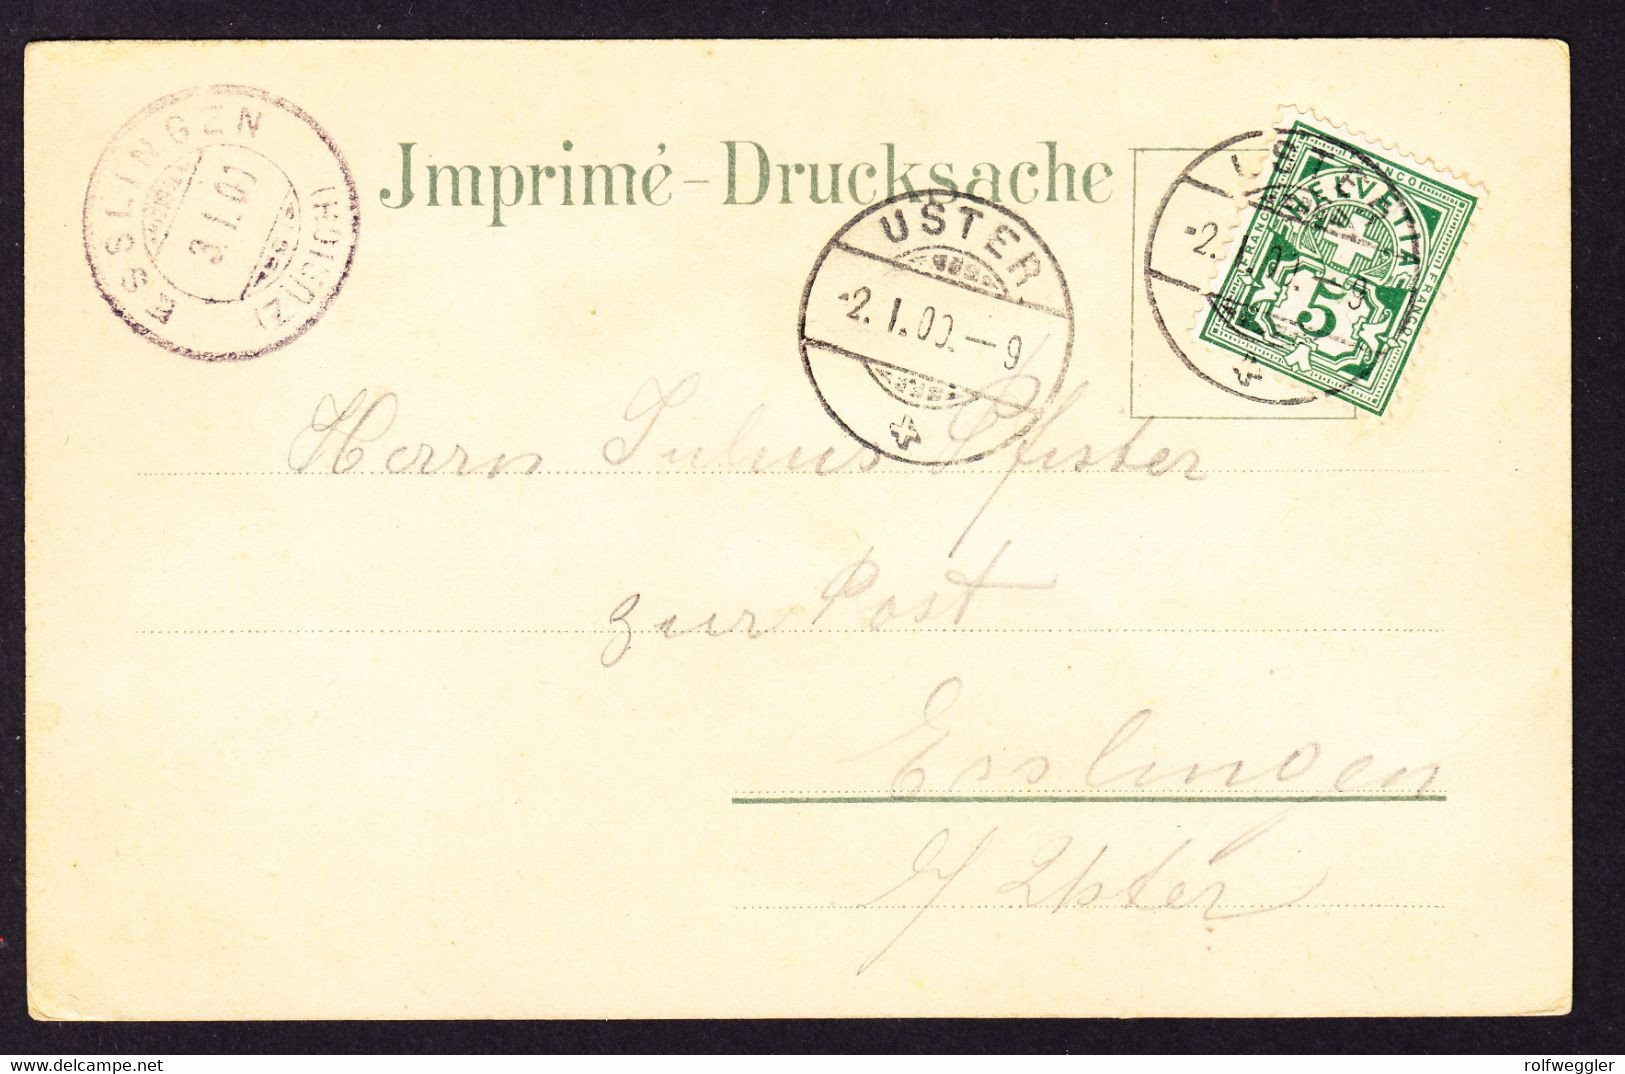 ESSLINGEN
3.I.00
(ZÜRICH)
Imprimé - Drucksache
USTER
-2.I.00.-9
USTER
-2.I.00.-9
FRANCO
HELVETIA
FRANCO
FRANCO
5
Herrn Julius Pfister
zur Post
Esslingen
b/ Uster
delcampe.net
rolfweggler